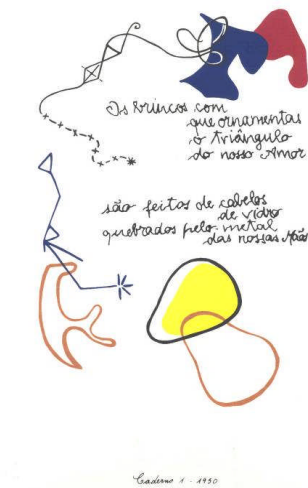 Os brincos com
que ornamentas
o triângulo
do nosso Amor
são feitos de cabelos
de vidro
quebrados pelo metal
das nossas Mãos
Caderno 1 - 1950